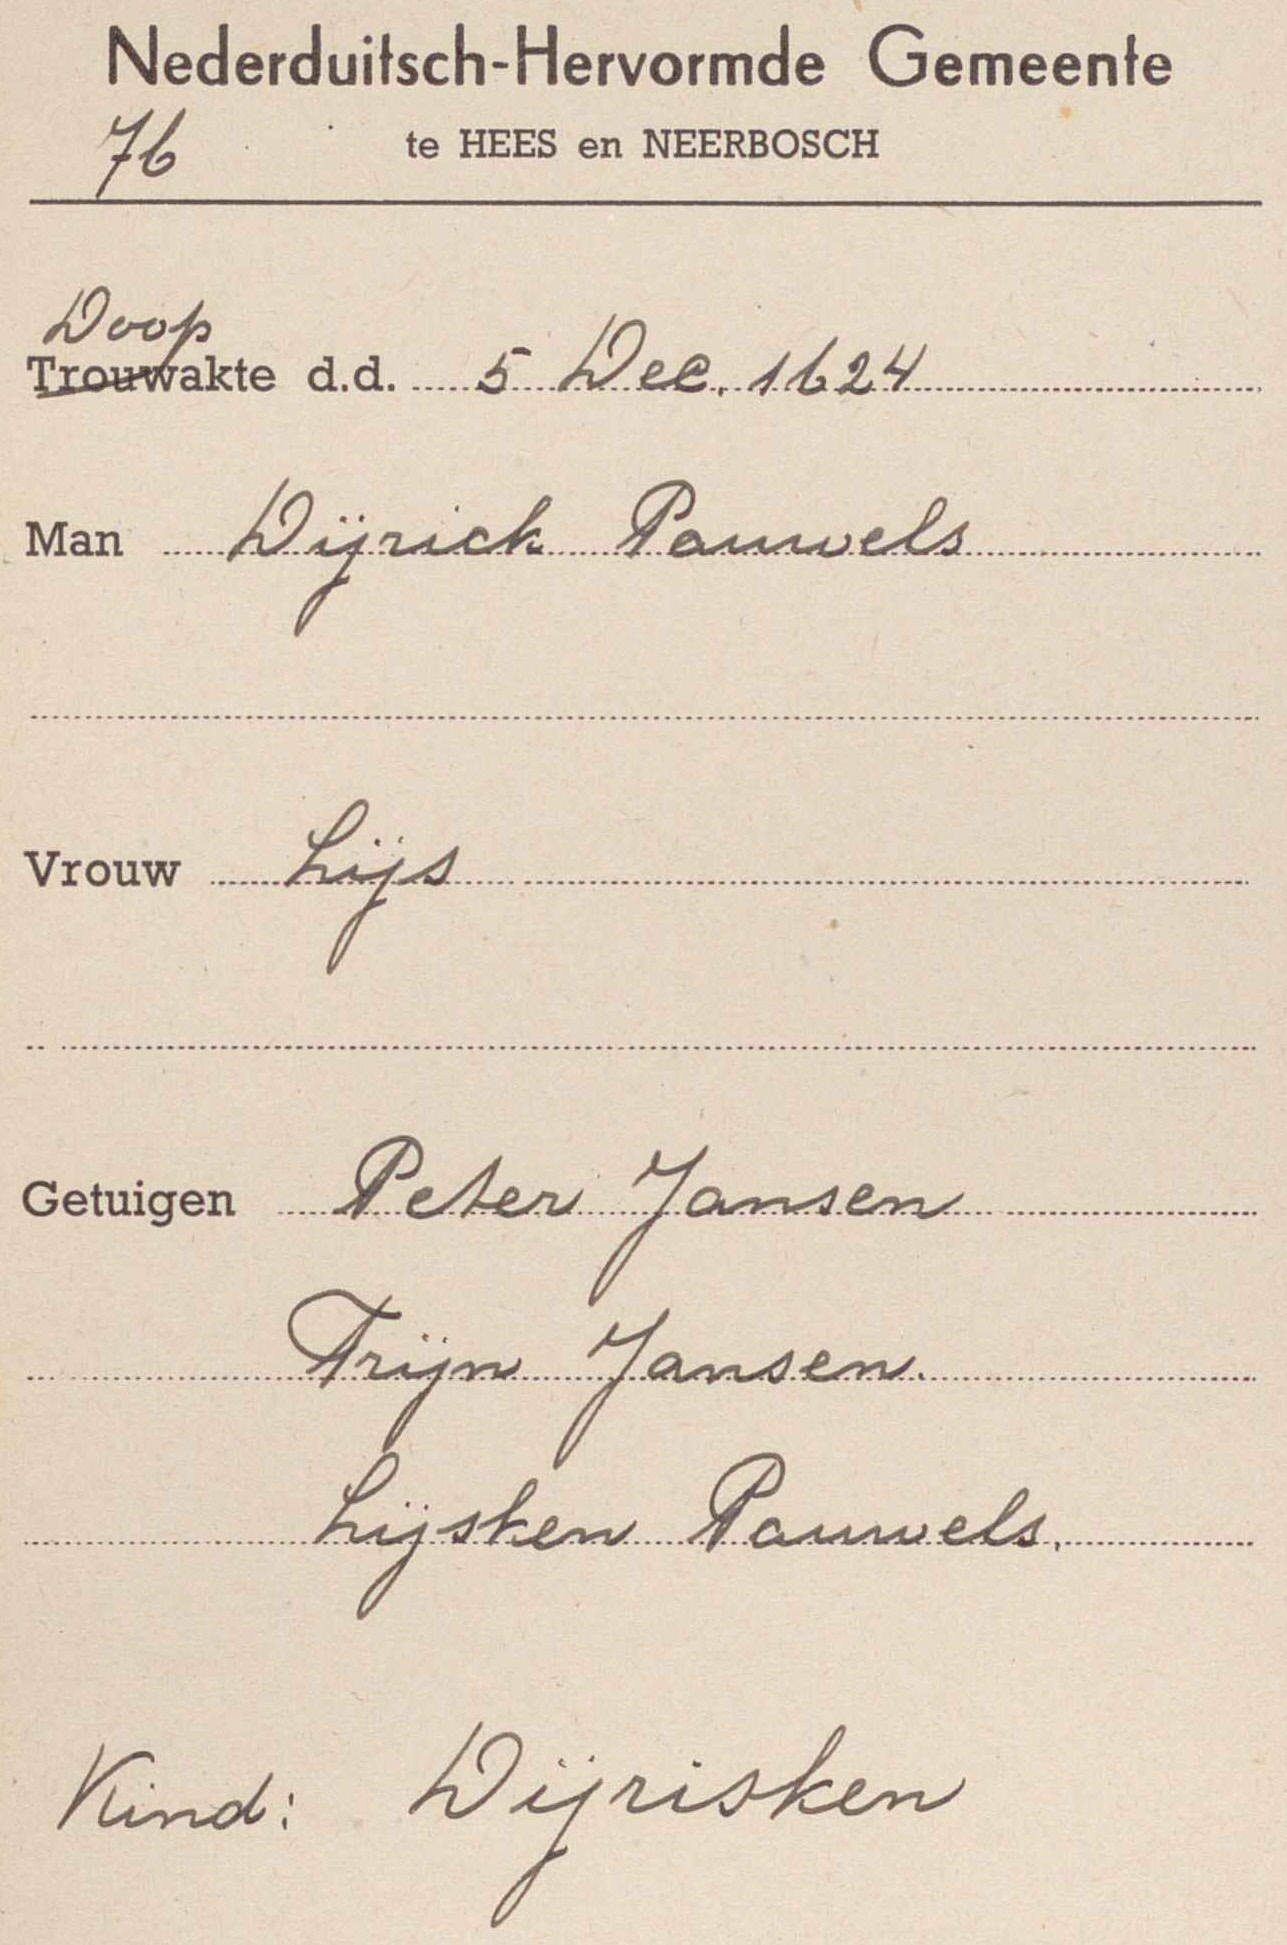 Nederduitsch-Hervormde Gemeente
76 te HEES en NEERBOSCH
Doop
Trouwakte d.d. 5 Dec. 1624
Man Dijrick Pauwels
Vrouw Lijs
Getuigen Peter Jansen
Trijn Jansen.
Lijsken Pauwels.
Kind: Dijrisken